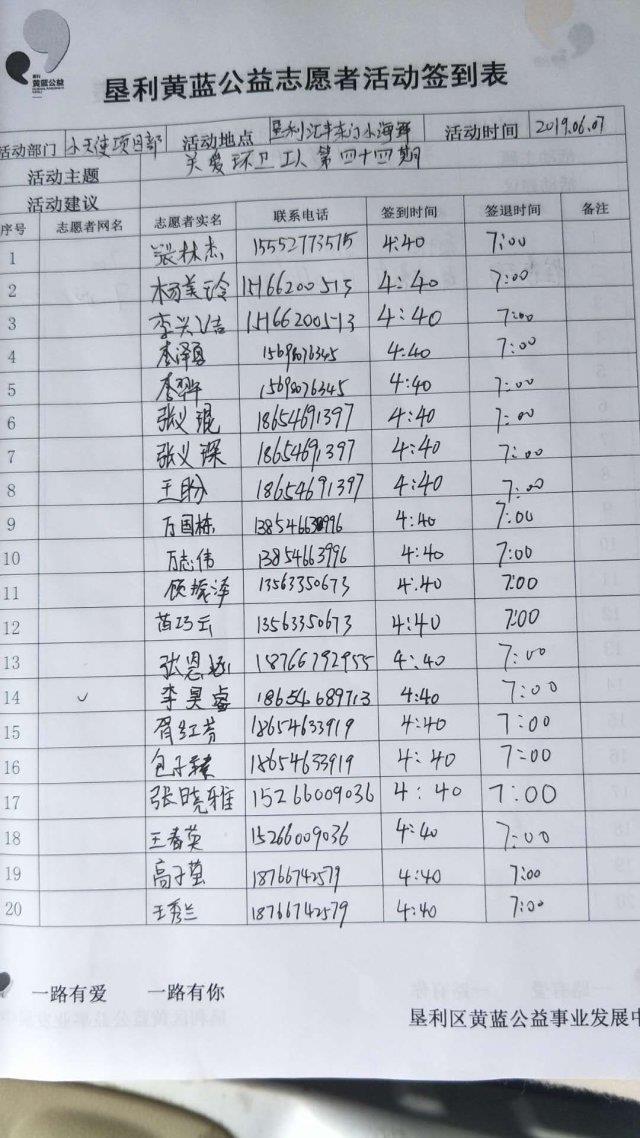 黄蓝公益
垦利黄蓝公益志愿者活动签到表
活动部门 小天使项目部 活动地点 垦利汇丰东门小海鲜 活动时间 2019.06.07
活动主题 关爱环卫工人第四十四期
活动建议
序号 志愿者网名 志愿者实名 联系电话 签到时间 签退时间 备注
1 张林杰 15552773575 4:40 7:00
2 杨美玲 15166200513 4:40 7:00
3 李兴洁 15166200513 4:40 7:00
4 李泽勇 15698076345 4:40 7:00
5 15698076345 4:40 7:00
6 张义琨 18654691397 4:40 7:00
7 张义琛 18654691397 4:40 7:00
8 王盼 18654691397 4:40 7:00
9 万国栋 13854663996 4:40 7:00
10 万志伟 13854663996 4:40 7:00
11 顾振泽 13563350673 4:40 7:00
12 苗巧云 13563350673 4:40 7:00
13 张恩 18766792955 4:40 7:00
14 李昊睿 18654689713 4:40 7:00
15 胥红芳 18654633919 4:40 7:00
16 包子 18654633919 4:40 7:00
17 张晓雅 15266009036 4:40 7:00
18 王春英 15266009036 4:40 7:00
19 高子萤 18766742579 4:40 7:00
20 王秀兰 18766742579 4:40 7:00
一路有爱 一路有你
垦利区黄蓝公益事业发展中